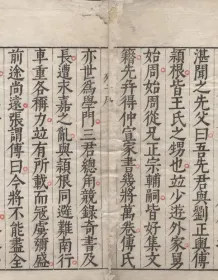 湛聞之先父曰吾先君與劉正輿傅
穎根皆王氏之甥也竝少遊外家舅
始周始周從兄正宗輔嗣皆好集文
籍先幷得仲宣家書幾將萬卷傅氏
亦世爲學門三君總角競錄奇書及
長遭永嘉之亂與穎根同避難南行
車重各稱力竝有所載而寇虜彌盛
前途尚遠張謂傅曰今將不能盡全